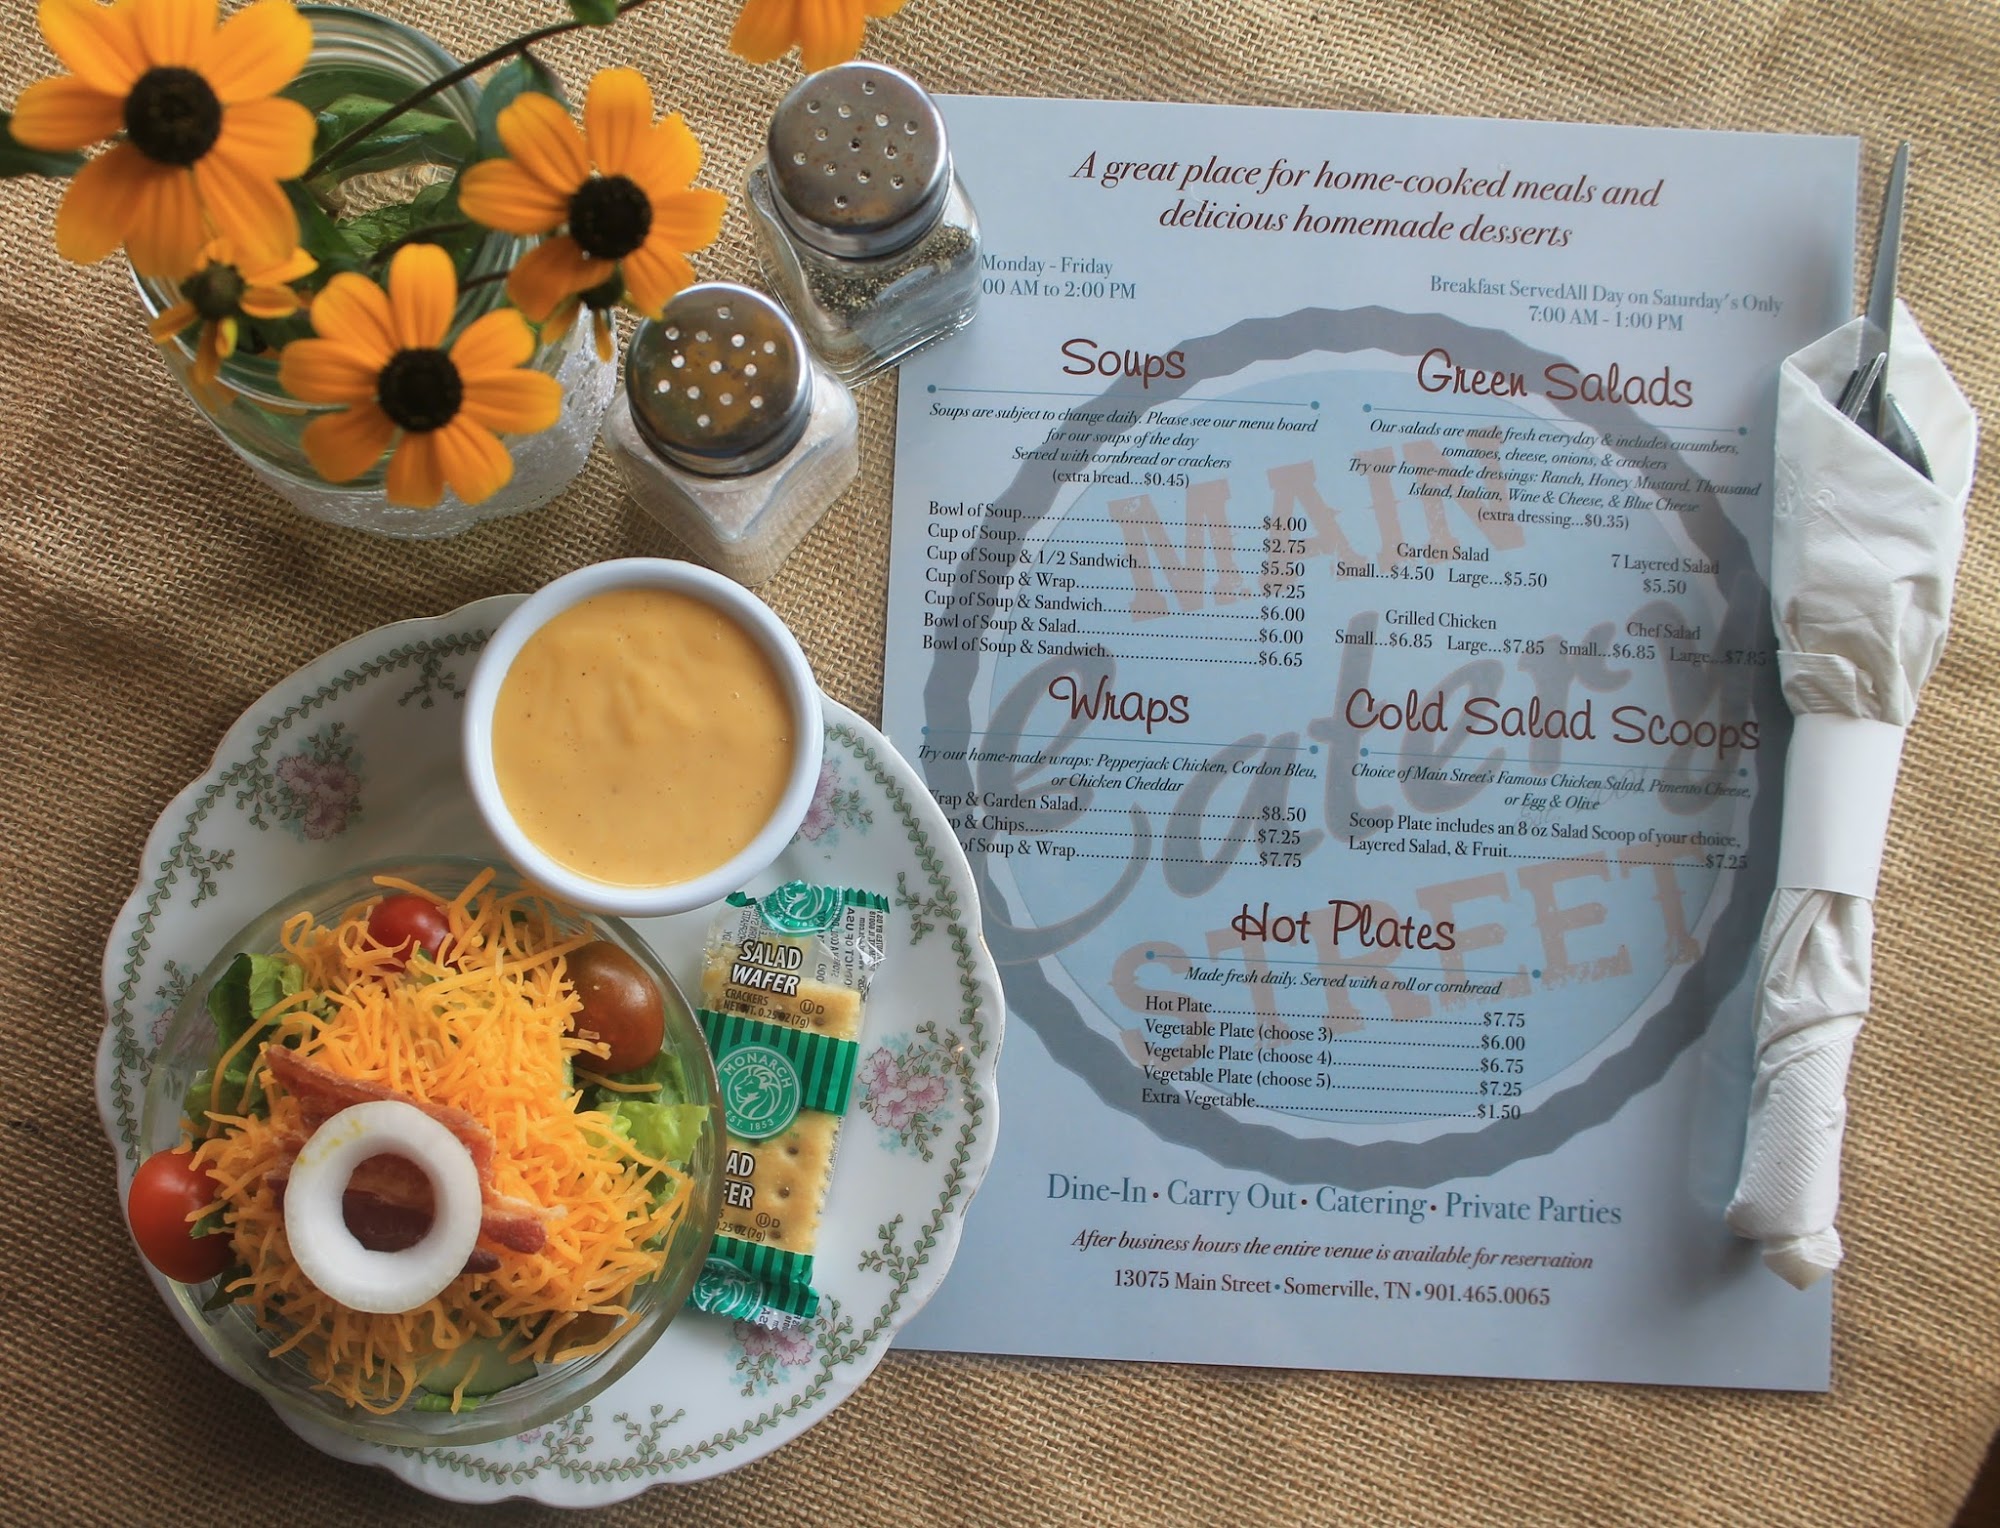 A great place for home-cooked meals and
delicious homemade desserts
Monday - Friday
00 AM to 2:00 PM
Breakfast ServedAll Day on Saturday's Only
7:00 AM - 1:00 PM
Soups
Soups are subject to change daily. Please see our menu board
for our soups of the day
Served with cornbread or crackers
(extra bread...$0.45)
Bowl of Soup...$4.00
Cup of Soup...$2.75
Cup of Soup & 1/2 Sandwich...$5.50
Cup of Soup & Wrap...$7.25
Cup of Soup & Sandwich...$6.00
Bowl of Soup & Salad...$6.00
Bowl of Soup & Sandwich...$6.65
Green Salads
Our salads are made fresh everyday & includes cucumbers,
tomatoes, cheese, onions, & crackers
Try our home-made dressings: Ranch, Honey Mustard, Thousand
Island, Italian, Wine & Cheese, & Blue Cheese
(extra dressing...$0.35)
Garden Salad
Small...$4.50 Large...$5.50
7 Layered Salad
$5.50
Grilled Chicken
Small...$6.85 Large...$7.85
Chef Salad
Small...$6.85 Large...$7.85
Wraps
Try our home-made wraps: Pepperjack Chicken, Cordon Bleu,
or Chicken Cheddar
rap & Garden Salad...$8.50
p & Chips...$7.25
of Soup & Wrap...$7.75
Cold Salad Scoops
Choice of Main Street's Famous Chicken Salad, Pimento Cheese,
or Egg & Olive
Scoop Plate includes an 8 oz Salad Scoop of your choice,
Layered Salad, & Fruit...$7.25
Hot Plates
Made fresh daily. Served with a roll or cornbread
Hot Plate...$7.75
Vegetable Plate (choose 3)...$6.00
Vegetable Plate (choose 4)...$6.75
Vegetable Plate (choose 5)...$7.25
Extra Vegetable...$1.50
MAIN
Eatery
STREET
Dine-In • Carry Out • Catering • Private Parties
After business hours the entire venue is available for reservation
13075 Main Street • Somerville, TN • 901.465.0065
SALAD
WAFER
CRACKERS
NET WT. 0.25 OZ (7g)
MONARCH
EST. 1853
AD
FER
.25 OZ (7g)